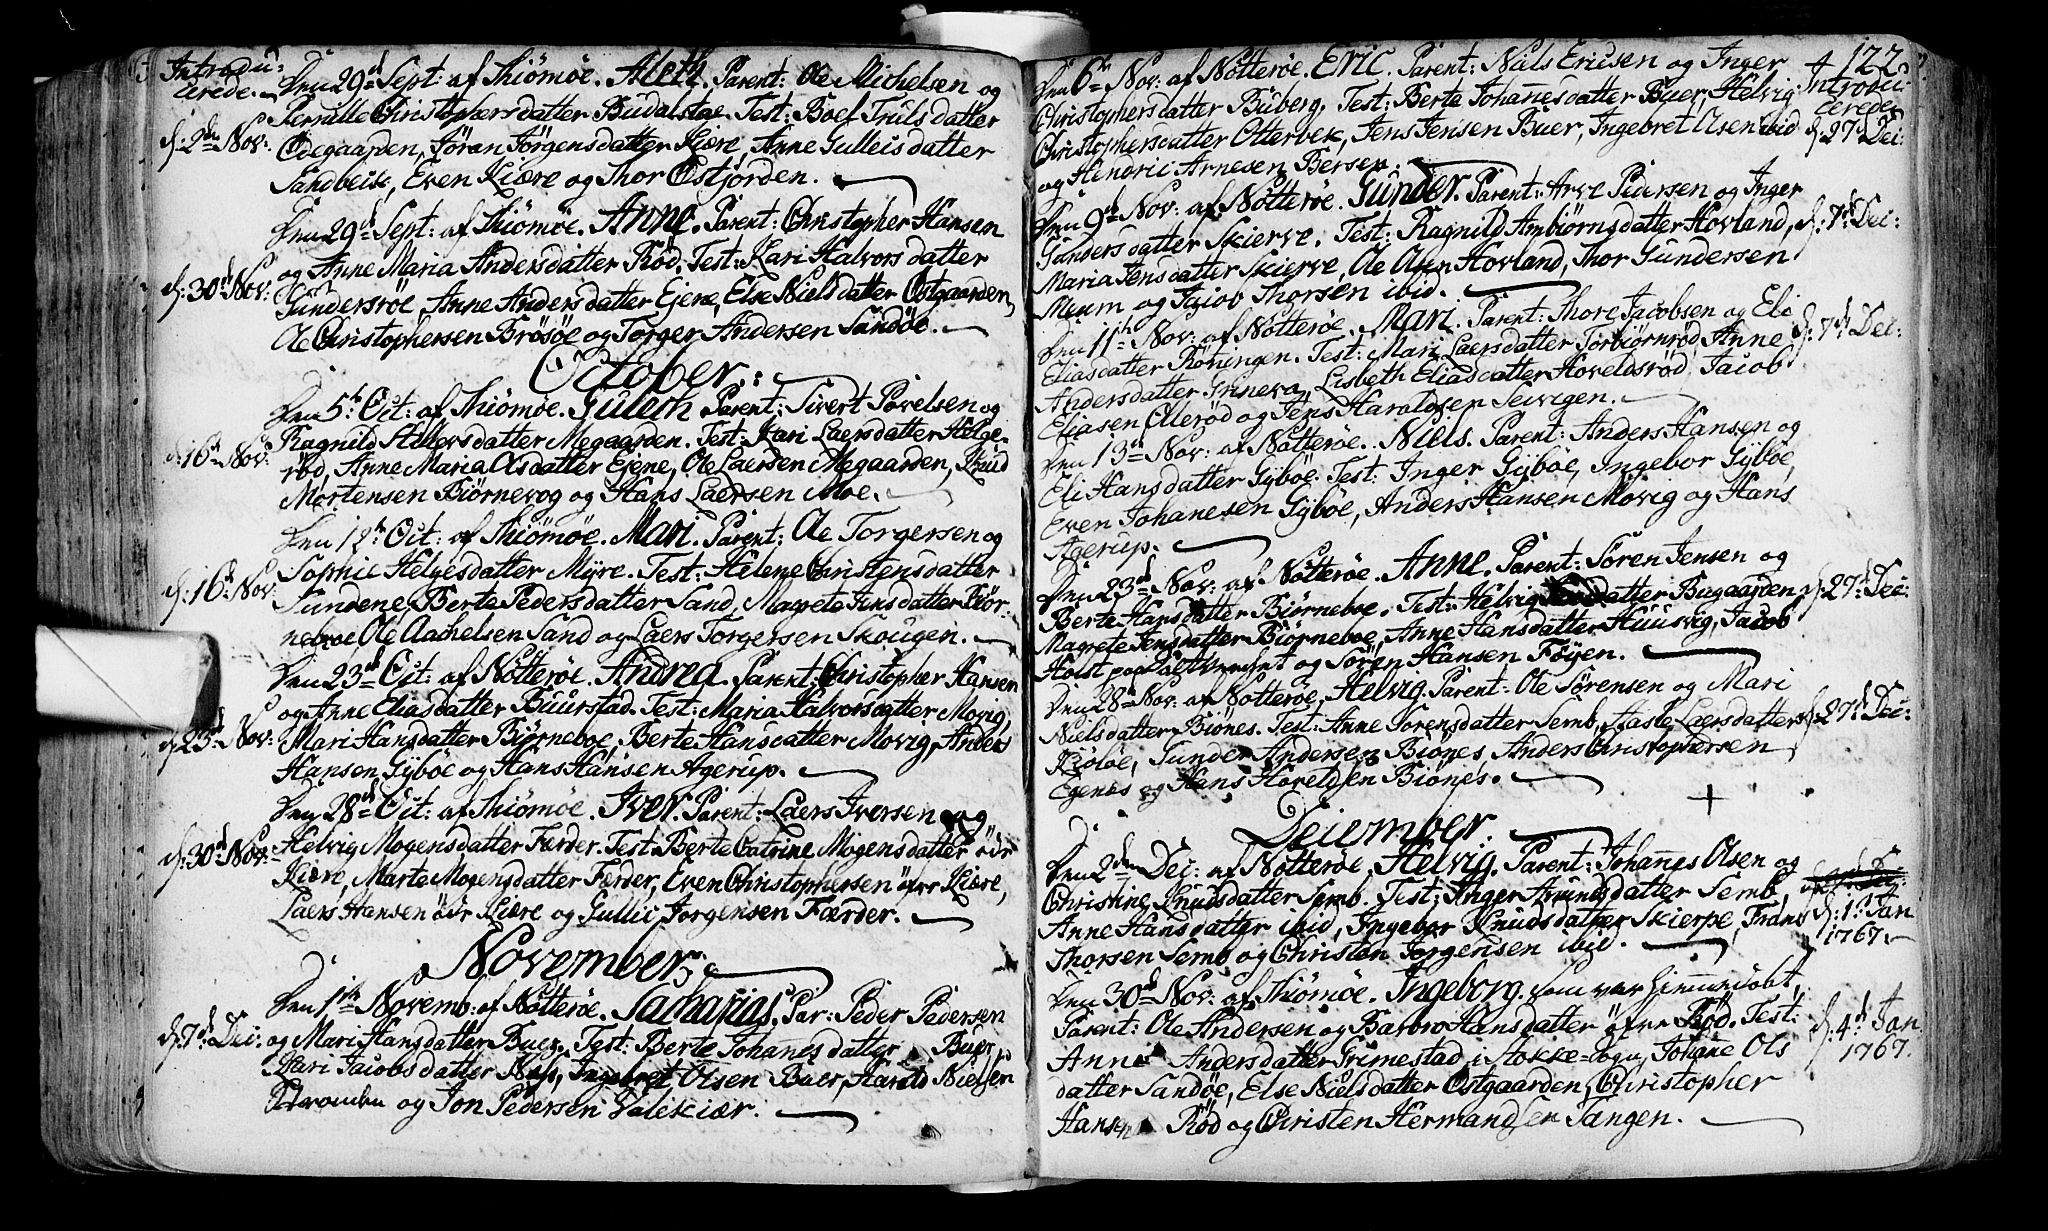 Introdu-
cerede.
Den 29de Sept: af Thiömöe. Aleth. Parent: Ole Michelsen og
Pernille Christophersdatter Budalstae. Test: Boel Trulsdatter
d: 2den Nov: Ödegaarden, Jöran Jörgensdatter Kiære, Anne Gulleicsdatter
Sandbeik, Even Kiære og Thor Östjorden.
Den 29de Sept: af Thiömöe. Anne. Parent: Christopher Hansen
og Anne Maria Andersdatter Röd. Test: Kari Halvorsdatter
d: 30d Nov: Gundersröe, Anne Andersdatter Ejene, Else Nielsdatter Östgaarden,
Ole Christophersen Brösöe og Torger Andersen Sandöe.
October:
Den 5te Oct: af Thiömöe. Gulech Parent: Sivert Povelsen og
Ragnild Hellersdatter Megaarden. Test: Kari Laersdatter Helge-
d: 16de Nov: röd, Anne Maria Olsdatter Ejene, Ole Laersen Megaarden, Knud
Mortensen Biörnevog og Hans Laersen Moe.
Den 12te Oct: af Thiömöe. Mari. Parent: Ole Torgersen og
Sophie Helgesdatter Myre. Test: Helene Christensdatter
d: 16d Nov: Sundene, Berte Pedersdatter Sand, Magrete Jensdatter Biör-
neboe Ole Aachelsen Sand og Laers Torgersen Skougen.
Den 23de Oct: af Nötteröe. Andrea. Parent: Christopher Hansen
og Anne Eliasdatter Buurstad. Test: Maria Halvorsdatter Movig,
d: 23de Nov: Mari Hansdatter Biörneboe, Berte Hansdatter Movig, Anders
Hansen Gyböe og Hans Hansen Agerup.
Den 28de Oct: af Thiömöe. Iver. Parent: Laers Iversen og
d: 30d Nov: Helvig Mogensdatter Færder. Test: Berte Catrine Mogensdatter
Kiære, Marte Mogensdatter Færder, Even Christophersen öfre Kiære,
Laers Hansen Kiære og Gullic Jörgensen Færder.
November.
Den 1te Novemb: af Nötteröe. Zacharias. Par: Peder Pedersen
d: 7d Dec: og Mari Hansdatter Buer. Test: Berte Johanesdatter Buer,
Kari Jacobsdatter Næs, Ingebret Olsen Buer, Harald Nielsen
og Jon Pedersen Valekiær.
122
Introdu-
cerede
Den 6te Nov: af Nötteröe. Eric. Parent: Niels Ericsen og Inger
Christophersdatter Buberg. Test: Berte Johanesdatter Buer, Helvig
Christophersdatter Otterbek, Jens Jensen Buer, Ingebret Olsen ibid d: 27d Dec:
og Hendric Arnesen Bersen.
Den 9de Nov: af Nötteröe. Gunder. Parent: Arve Pedersen og Inger
Gundersdatter Skierve. Test: Ragnild Ambiörnsdatter Hovland, d: 7d Dec:
Maria Jensdatter Skierve, Ole Olsen Hovland, Thor Gundersen
Meum og Jacob Thorsen ibid.
Den 11te Nov: af Nötteröe. Mari. Parent: Thore Jacobsen og Eli d: 7d Dec:
Eliasdatter Röningen. Test: Mari Laersdatter Torbiörnröd, Anne
Andersdatter Grinevog, Lisbeth Eliasdatter Hoveldsröd, Jacob
Eliasen Olleröd og Jens Haroldsen Teivigen.
Den 13de Nov: af Nötteröe. Niels. Parent: Anders Hansen og
Eli Hansdatter Gyböe. Test: Inger Gyböe, Ingebor Gyböe,
Even Johanesen Gyböe, Anders Hansen Movig og Hans
Agerup.
Den 23de Nov: af Nötteröe. Anne. Parent: Sören Jensen og
Berte Hansdatter Biörneboe. Test: Helvig datter Bugaarden d: 27d Dec:
Magrete Jensdatter Biörneboe, Anne Hansdatter Huusvig, Jacob
Holst paa og Sören Hansen Föyen.
Den 28de Nov: af Nötteröe, Helvig. Parent: Ole Sörensen og Mari
Nielsdatter Biönes. Test: Anne Sorensdatter Semb, Aaste Laersdatter d: 27d Dec:
Kiölöe, Gunder Andersen Biönes, Anders Christophersen
Egenes og Hans Hoveldsen Biönes.
+
December.
Den 2den Dec: af Nötteröe, Helvig. Parent: Johanes Olsen og
Christine Knudsdatter Semb. Test: Inger Amundsdatter Semb, d: 1te Jan
Anne Hansdatter ibid, Ingebor Knudsdatter Skierpe, Frans 1767.
Thorsen Semb og Christen Jörgensen ibid.
Den 30de Nov: af Thiömöe. Ingeborg. som var hiemmedöbt,
Parent: Ole Andersen og Barbro Hansdatter öfre Röd. Test: d: 4d Jan
Anne Andersdatter Grimestad i Stokke-Sogn, Johane Ols 1767.
datter Sandöe, Else Nielsdatter Östgaarden, Christopher
Hansen Röd og Christen Hermandsen Tangen.